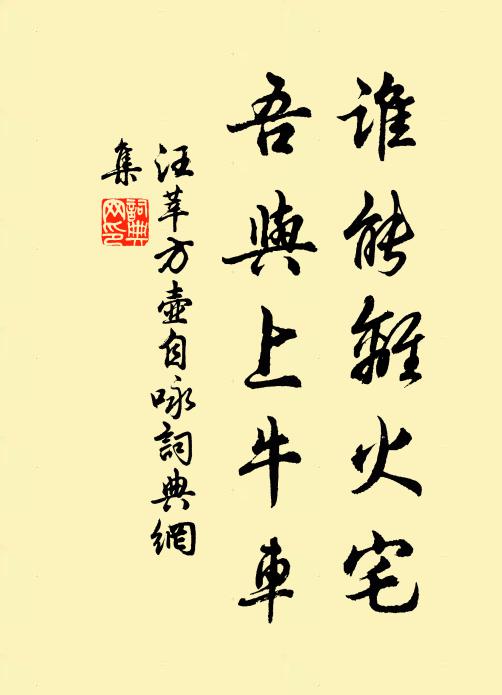 誰能離火宅
吾與上牛車
汪莘方壺自咏詞典網
集
詞典網印